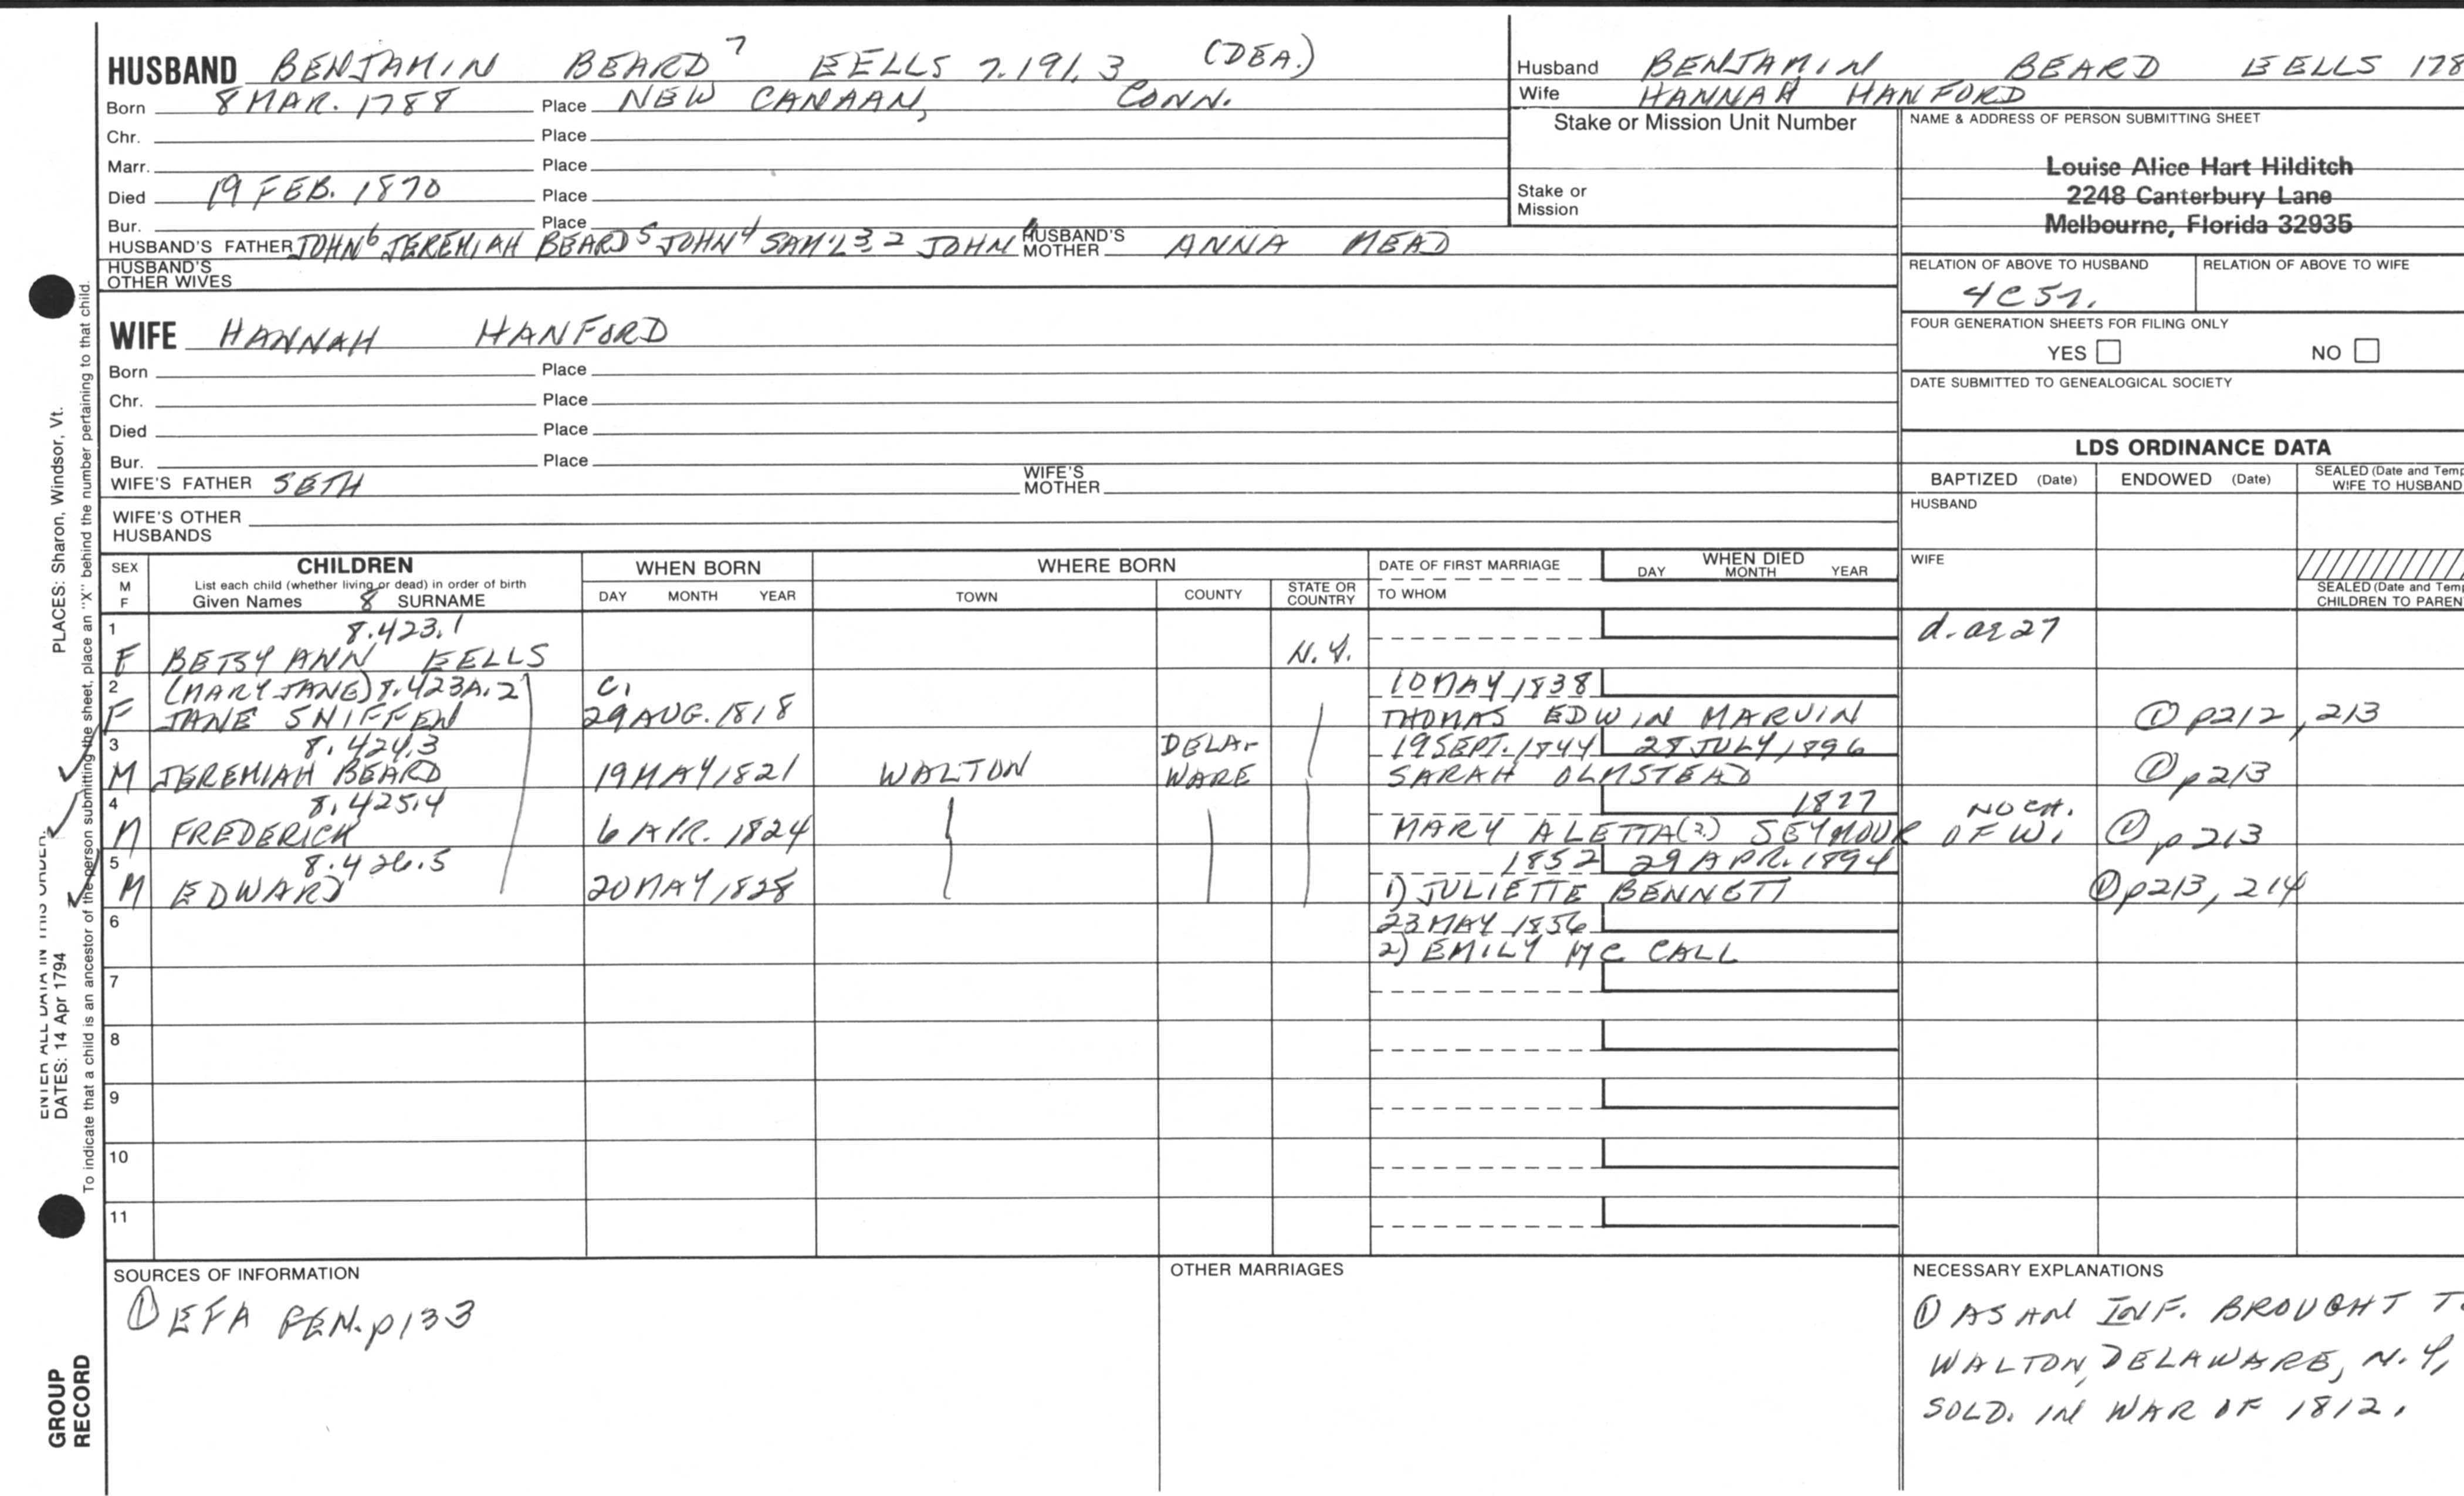 HUSBAND BENJAMIN BEARD 7 EELLS 7.191.3 (DEA.)
Born 8 MAR. 1788 Place NEW CANAAN, CONN.
Chr. Place
Marr. Place
Died 19 FEB. 1870 Place
Bur. Place
HUSBAND'S FATHER JOHN6 JEREMIAH BEARD5 JOHN4 SAM'L3,2 JOHN HUSBAND'S MOTHER ANNA MEAD
HUSBAND'S OTHER WIVES
WIFE HANNAH HANFORD
Born Place
Chr. Place
Died Place
Bur. Place
WIFE'S FATHER SETH WIFE'S MOTHER
WIFE'S OTHER HUSBANDS
Husband BENJAMIN BEARD EELLS 178
Wife HANNAH HANFORD
Stake or Mission Unit Number
Stake or Mission
NAME & ADDRESS OF PERSON SUBMITTING SHEET
Louise Alice Hart Hilditch
2248 Canterbury Lane
Melbourne, Florida 32935
RELATION OF ABOVE TO HUSBAND RELATION OF ABOVE TO WIFE
4C5r.
FOUR GENERATION SHEETS FOR FILING ONLY
YES NO
DATE SUBMITTED TO GENEALOGICAL SOCIETY
LDS ORDINANCE DATA
BAPTIZED (Date) ENDOWED (Date) SEALED (Date and Temp
WIFE TO HUSBAND
HUSBAND
WIFE
SEALED (Date and Tem
CHILDREN TO PAREN
SEX M F
CHILDREN
List each child (whether living or dead) in order of birth
Given Names 8 SURNAME
WHEN BORN
DAY MONTH YEAR
WHERE BORN
TOWN COUNTY STATE OR COUNTRY
DATE OF FIRST MARRIAGE
TO WHOM
WHEN DIED
DAY MONTH YEAR
1 8.423.1 d. ae 27
F BETSY ANN EELLS N.Y.
2 (MARY JANE) 8.423A.2 C. 10 MAY 1838
F JANE SNIFFEN 29 AUG. 1818 THOMAS EDWIN MARVIN ① p212, 213
3 8.424.3 DELA- 19 SEPT. 1844 28 JULY 1896
M JEREMIAH BEARD 19 MAY 1821 WALTON WARE SARAH OLMSTEAD ① p213
4 8.425.4 1877 NO CH.
M FREDERICK 6 APR. 1824 MARY ALETTA(?) SEYMOUR OF W. ① p213
5 8.426.5 1852 29 APR. 1894
M EDWARD 20 MAY 1828 1) JULIETTE BENNETT ① p213, 214
6 23 MAY 1856
2) EMILY MC CALL
7
8
9
10
11
SOURCES OF INFORMATION
① EFA GEN. p133
OTHER MARRIAGES
NECESSARY EXPLANATIONS
① AS AN INF. BROUGHT T
WALTON, DELAWARE, N.Y,
SOLD. IN WAR OF 1812.
PLACES: Sharon, Windsor, Vt.
ENTER ALL DATA IN THIS ORDER:
DATES: 14 Apr 1794
To indicate that a child is an ancestor of the person submitting the sheet, place an "X" behind the number pertaining to that child.
GROUP RECORD